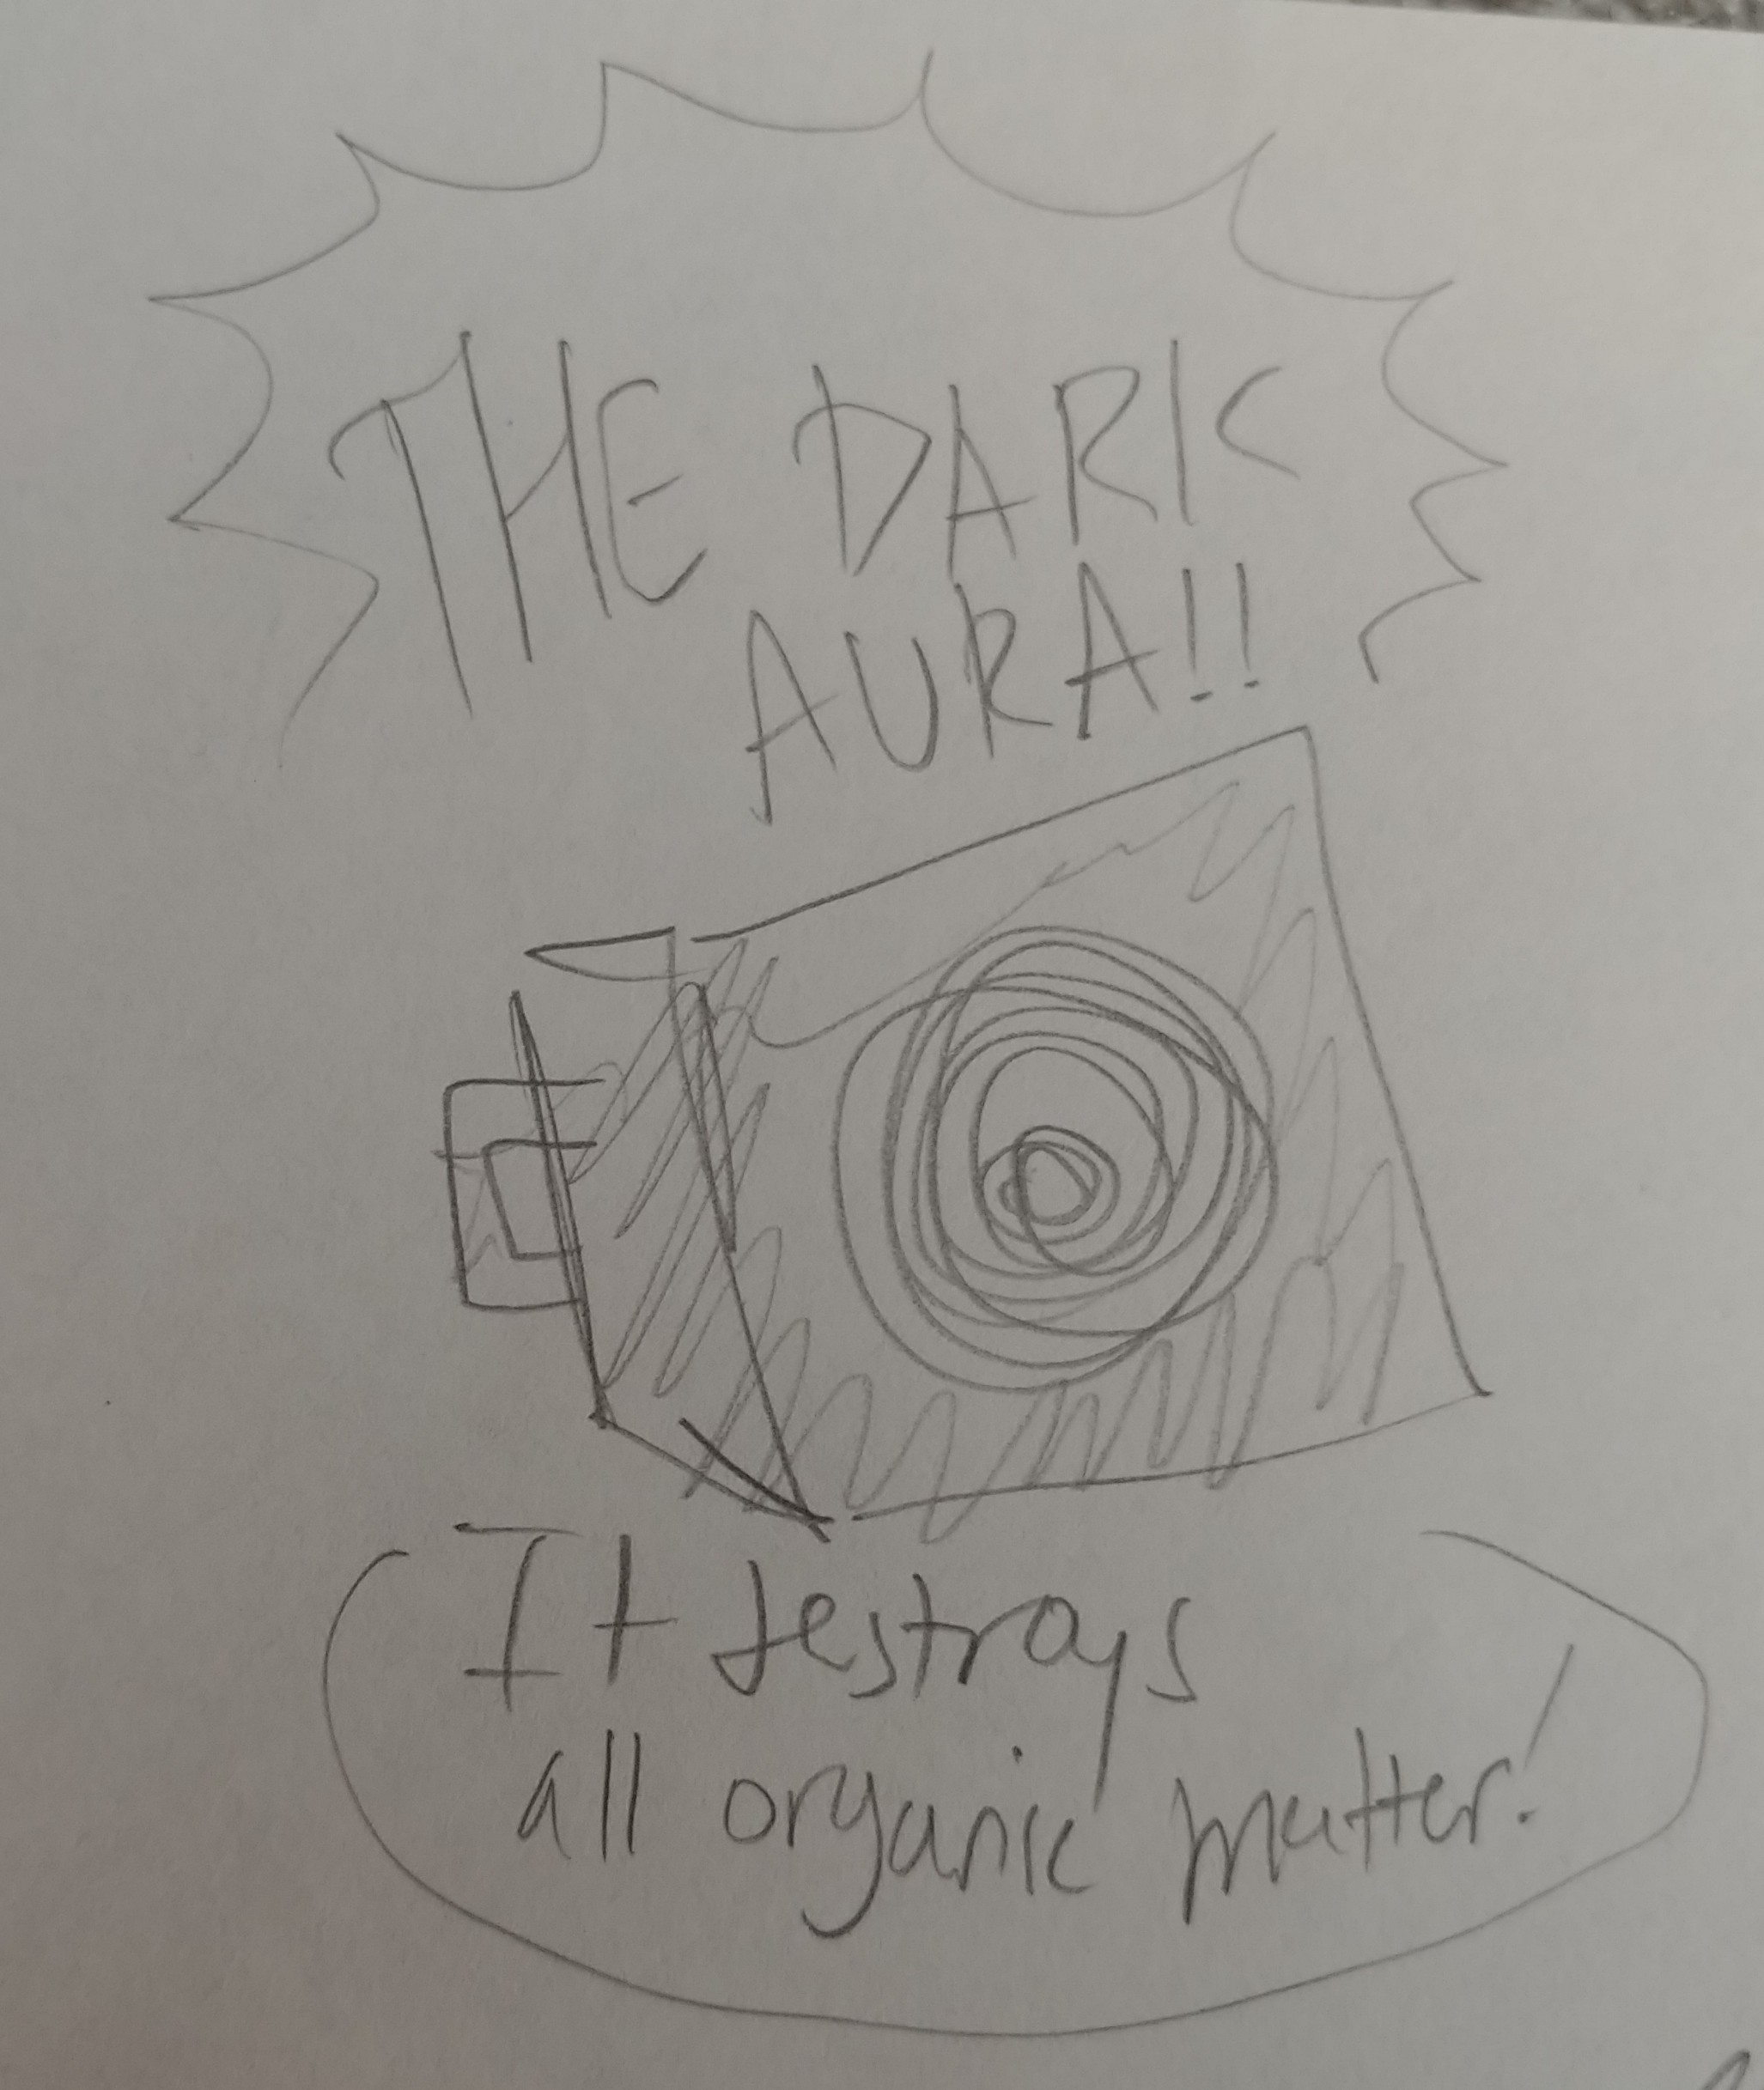 THE DARK
AURA!!
It testroys
all organic matter!